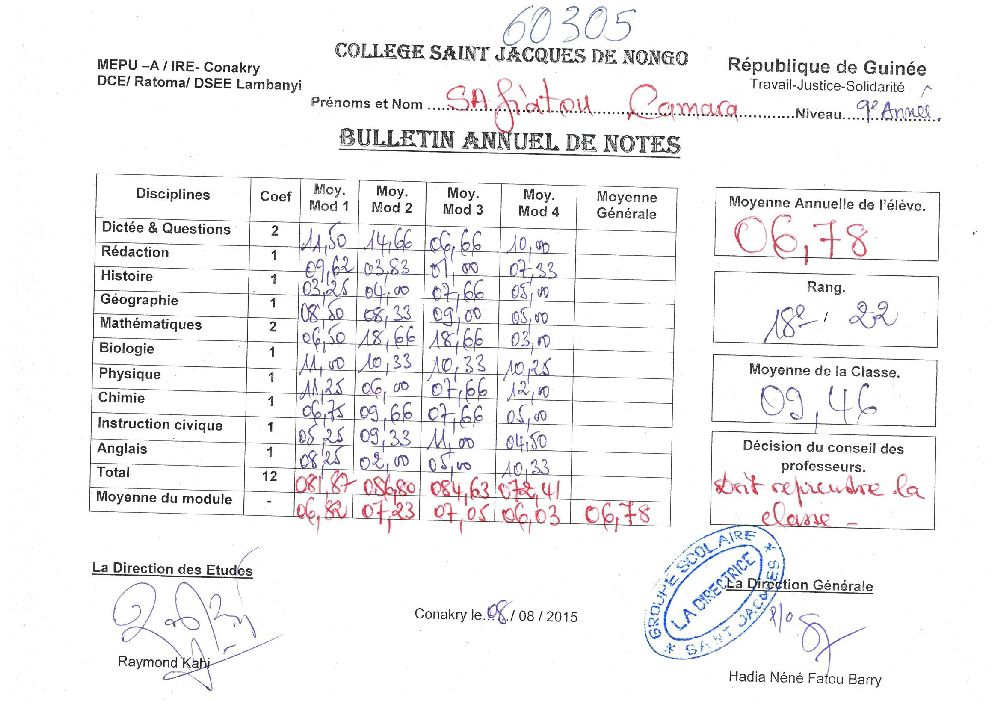 60305
COLLEGE SAINT JACQUES DE NONGO
MEPU –A / IRE- Conakry
DCE/ Ratoma/ DSEE Lambanyi
République de Guinée
Travail-Justice-Solidarité
Prénoms et Nom ... SAfiatou Camara ... Niveau... 9e Année
BULLETIN ANNUEL DE NOTES
Disciplines Coef Moy. Mod 1 Moy. Mod 2 Moy. Mod 3 Moy. Mod 4 Moyenne Générale
Dictée & Questions 2 11,50 14,66 06,66 10,00
Rédaction 1 09,62 03,83 01,00 07,33
Histoire 1 03,25 04,00 07,66 05,00
Géographie 1 08,50 08,33 09,00 05,00
Mathématiques 2 06,50 18,66 18,66 03,00
Biologie 1 11,00 10,33 10,33 10,25
Physique 1 11,25 06,00 07,66 12,00
Chimie 1 06,75 09,66 07,66 05,00
Instruction civique 1 05,25 09,33 11,00 04,50
Anglais 1 08,25 02,00 05,00 10,33
Total 12 081,87 086,80 084,63 072,41
Moyenne du module - 06,82 07,23 07,05 06,03 06,78
Moyenne Annuelle de l'élève.
06,78
Rang.
18e : 22
Moyenne de la Classe.
09,46
Décision du conseil des
professeurs.
Doit reprendre la
classe -
La Direction des Etudes
Raymond Kahi
Conakry le.08./ 08 / 2015
GROUPE SCOLAIRE
LA DIRECTRICE
* SAINT JACQUES *
La Direction Générale
P/O
Hadia Néné Fatou Barry